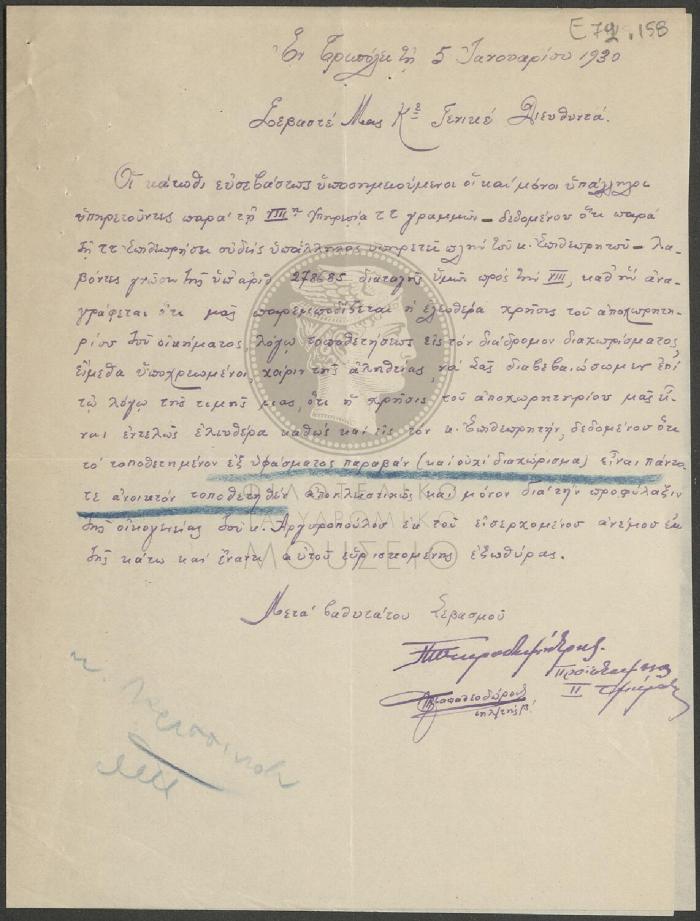 E 79.158
Ἐν Τριπόλει τῇ 5 Ἰανουαρίου 1930
Σεβαστέ Μας Κε Γενικέ Διευθυντά.
Οἱ κάτωθι εὐσεβάστως ὑποσημειούμενοι οἱ καί μόνοι ὑπάλληλοι
ὑπηρετοῦντες παρά τῇ VIII ῃ Ὑπηρεσίᾳ ττ γραμμῶν – δεδομένου ὅτι παρά
τῇ ττ Ἐπιθεωρήσει οὐδείς ὑπάλληλος ὑπηρετεῖ πλήν τοῦ κ. Ἐπιθεωρητοῦ – λα-
βόντες γνῶσιν τῆς ὑπ' ἀριθ. 278685 διαταγῆς ὑμῶν πρός τήν VIII, καθ' ἥν ἀνα-
γράφεται ὅτι μᾶς παρεμποδίζεται ἡ ἐλευθέρα χρῆσις τοῦ ἀποχωρητη-
ρίου τοῦ οἰκήματος λόγῳ τοποθετήσεως εἰς τόν διάδρομον διαχωρίσματος,
εἴμεθα ὑποχρεωμένοι, χάριν τῆς ἀληθείας, νά Σᾶς διαβεβαιώσωμεν ἐπί
τῷ λόγῳ τῆς τιμῆς μας, ὅτι ἡ χρῆσις τοῦ ἀποχωρητηρίου μᾶς εἶ-
ναι ἐντελῶς ἐλευθέρα καθώς καί εἰς τόν κ. Ἐπιθεωρητήν, δεδομένου ὅτι
τό τοποθετημένον ἐξ ὑφάσματος παραβάν (καί οὐχί διαχώρισμα) εἶναι πάντο-
τε ἀνοικτόν τοποθετηθέν ἀποκλειστικῶς καί μόνον διά τήν προφύλαξιν
τῆς οἰκογενείας τοῦ κ. Ἀργυροπούλου ἐκ τοῦ εἰσερχομένου ἀνέμου ἐκ
τῆς κάτω καί ἔναντι αὐτοῦ εὑρισκομένης ἐξωθύρας.
Μετά βαθυτάτου Σεβασμοῦ
Προϊστάμενος
II
Παπαθεοδώρου
κ.
ΦΙΛΟΤΕΛΙΚΟ
ΤΑΧΥΔΡΟΜΙΚΟ
ΜΟΥΣΕΙΟ